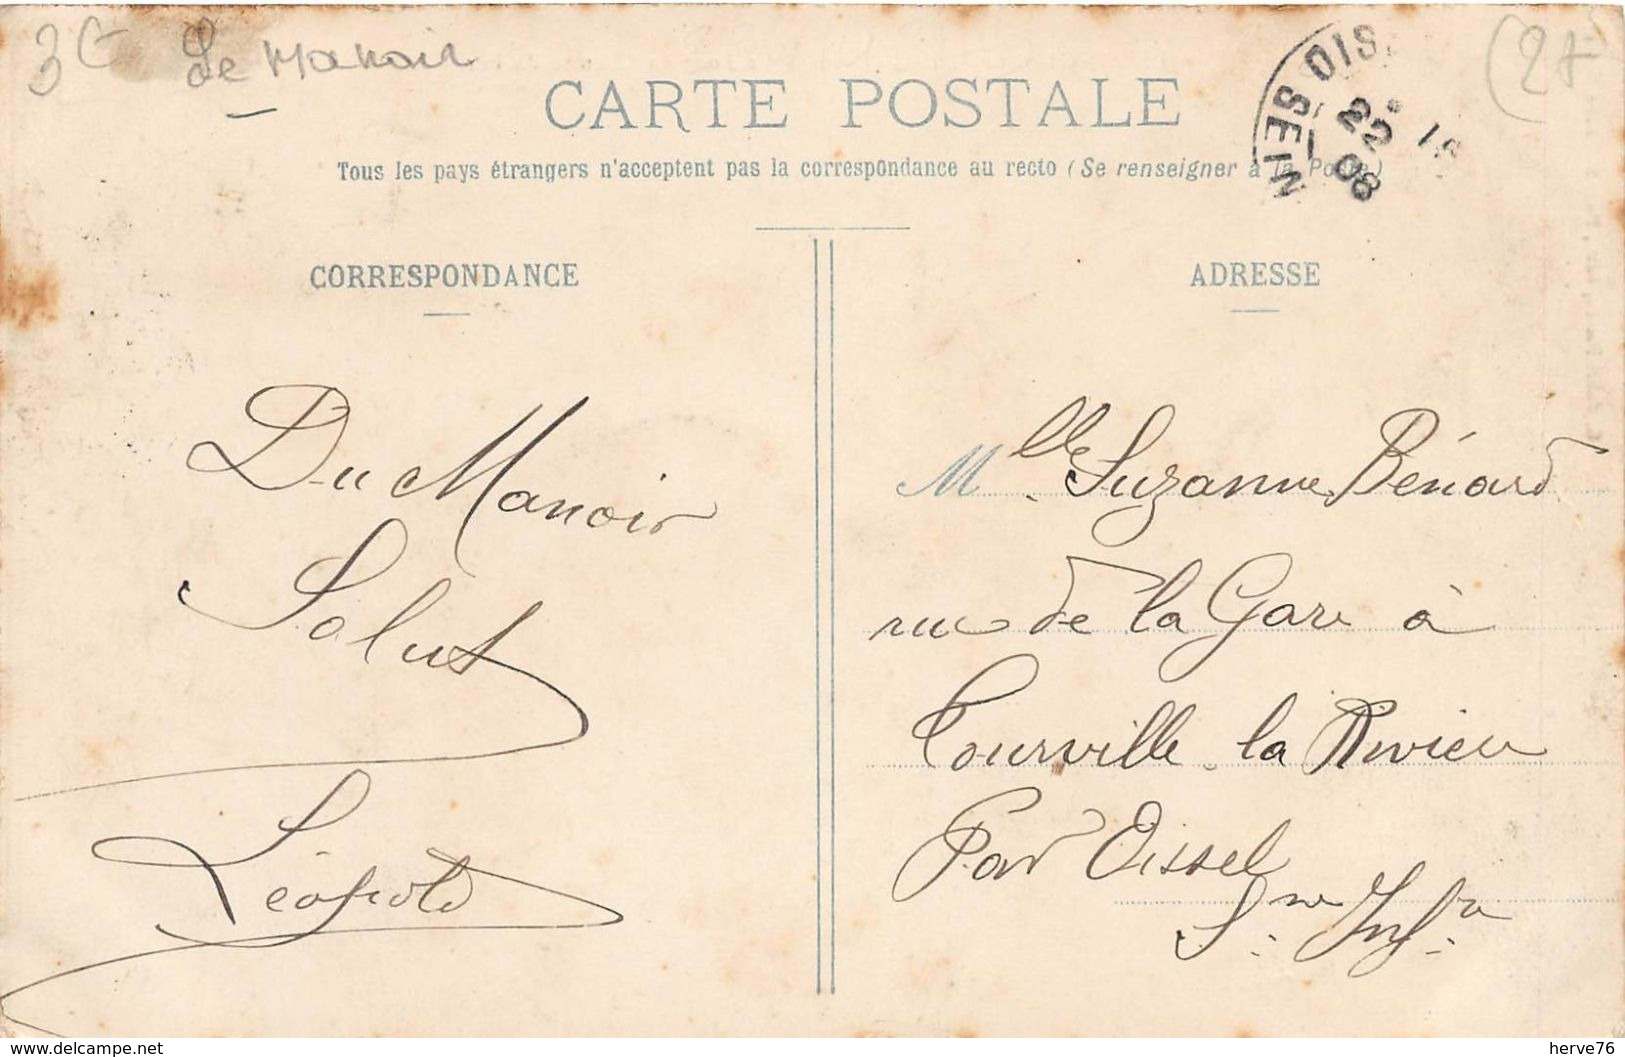 3€ Le Manoir
(27)
CARTE POSTALE
Tous les pays étrangers n'acceptent pas la correspondance au recto (Se renseigner à la Poste)
22
08
CORRESPONDANCE
ADRESSE
Du Manoir
Salut
Léopold
Mlle Suzanne Bénard
rue de la Gare à
Tourville la Rivière
Par Oissel
Sne Infre
www.delcampe.net
herve76